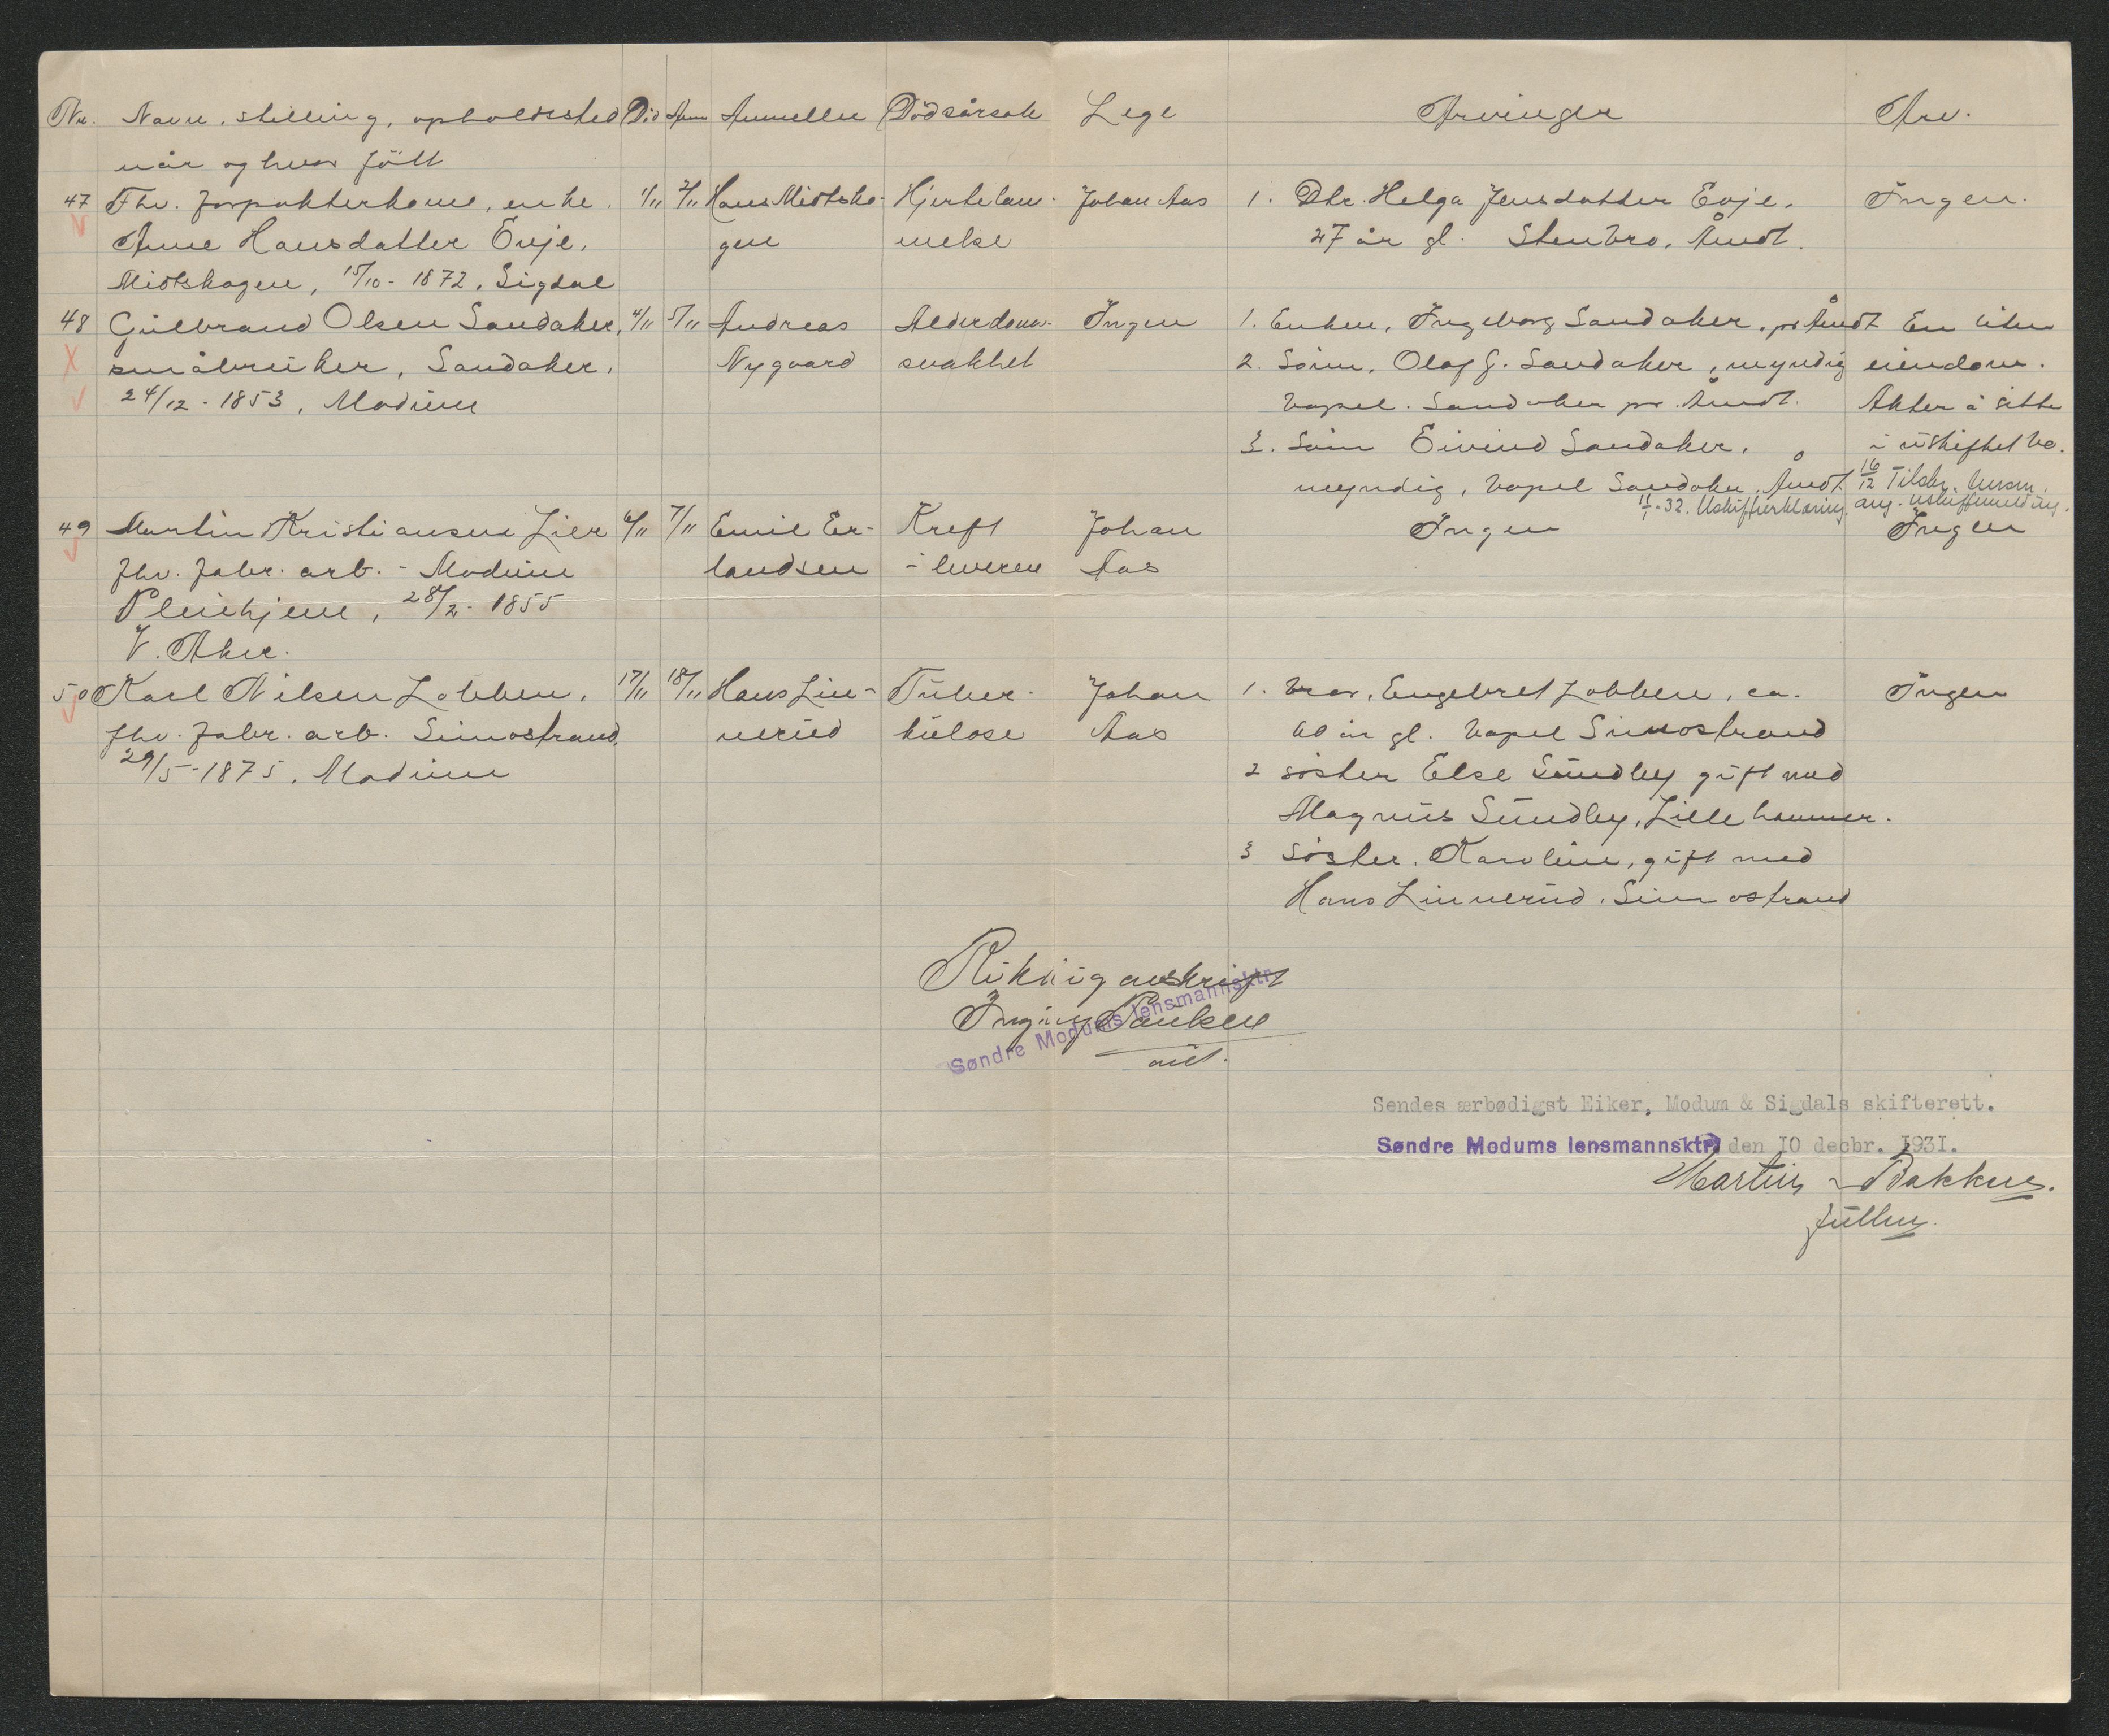 Nr. Navn, stilling, opholdssted Död Anm Anmelder Dödsårsak Lege Arvinger Arv.
når og hvor född
47 Fhv. forpakterkone, enke. 1/11 2/11 Hans Midtsko- Hjertelam- Johan Aas 1. Dtr. Helga Jensdatter Evje. Ingen.
Anne Hansdatter Evje. gen melse 27 år gl. Stenbro, Åmot.
Midtskogen, 15/10-1872, Sigdal
48 Gulbrand Olsen Sandaker, 4/11 5/11 Andreas Alderdoms- Ingen 1. Enken, Ingeborg Sandaker, pr Åmot En liten
småbruker, Sandaker. Nygaard svakhet 2. Sönn, Olaf G. Sandaker, myndig eiendom.
24/12-1853, Modum bopel. Sandaker pr. Åmot. Akter å sitte
3. Sönn Eivind Sandaker, i uskiftet bo.
myndig, bopel Sandaker, Åmot 16/12 Tilskr. lensm.
11/1-32. Uskifterklæring ang. uskiftemelding.
49 Martin Kristiansen Lier 6/11 7/11 Emil Er- Kreft Johan Ingen Ingen
fhv. fabr. arb. - Modum landsen i leveren Aas
Pleiehjem, 28/2-1855
V. Aker.
50 Karl Nilsen Lobben, 17/11 18/11 Hans Lin- Tuber- Johan 1. Bror, Engebret Lobben, ca. Ingen
fhv. fabr. arb. Simostrand, nerud kulose Aas 60 år gl. bopel Simostrand
29/5-1875, Modum 2 söster Else Sundby gift med
Magnus Sundby, Lillehammer.
3 söster. Karoline, gift med
Hans Linnerud, Simostrand
Riktig avskrift
Søndre Modums lensmannsktr.
Sendes ærbødigst Eiker, Modum & Sigdals skifterett.
Søndre Modums lensmannsktr. den 10 decbr. 1931.
Martin Bakken.
fullm.